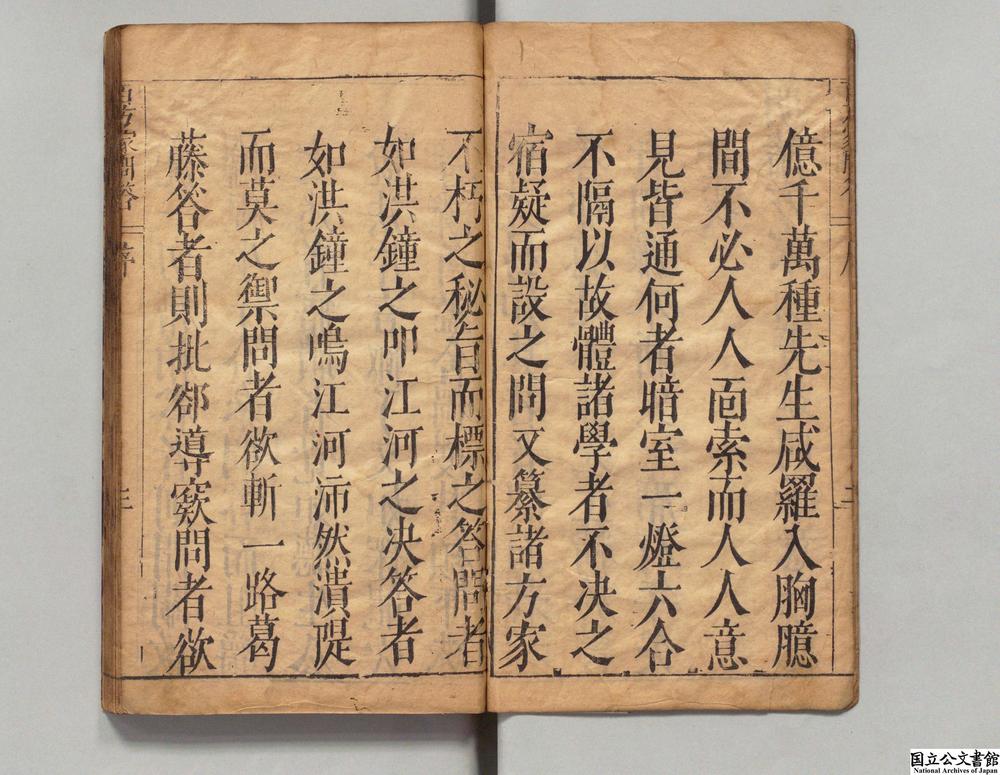 億千萬種先生咸羅入胸臆
間不必人人面索而人人意
見皆通何者暗室一燈六合
不隔以故體諸學者不決之
宿疑而設之問又纂諸方家
不朽之秘旨而標之答問者
如洪鐘之叩江河之決答者
如洪鐘之鳴江河沛然潰隄
而莫之禦問者欲斬一路葛
藤答者則批郤導窾問者欲
家問答 序
三
国立公文書館
National Archives of Japan